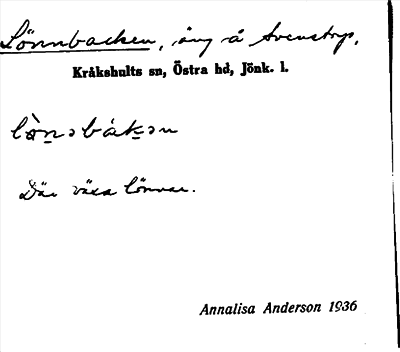 Lönnbacken, äng å Svenstorp,
Kråkshults sn, Östra hd, Jönk. l.
Där växa lönnar.
Annalisa Anderson 1936